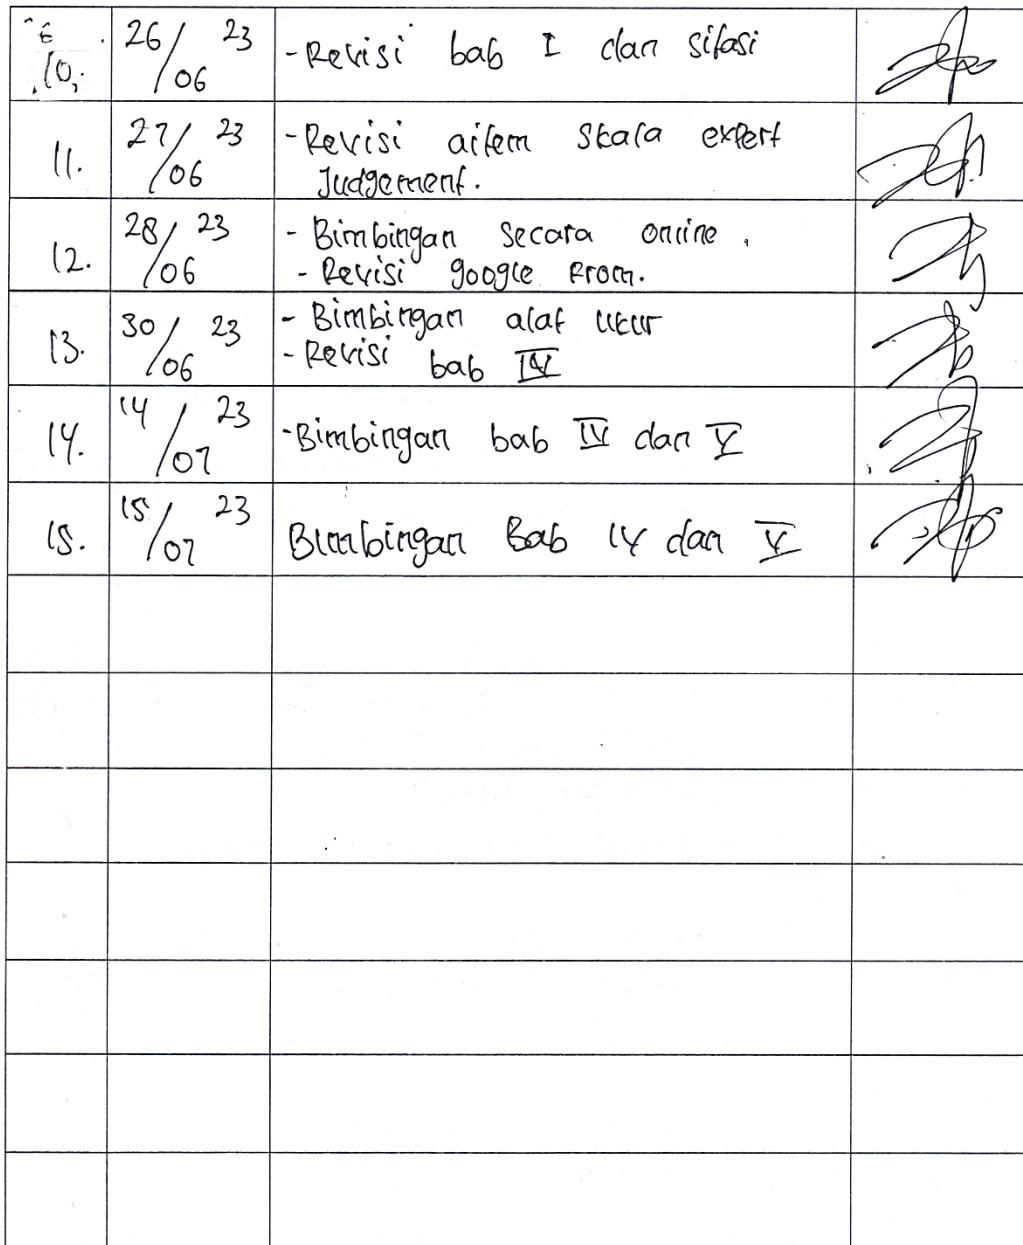 10. 26/06 23 - Revisi bab I dan sitasi
11. 27/06 23 - Revisi aitem skala expert
Judgement.
12. 28/06 23 - Bimbingan secara online.
- Revisi google From.
13. 30/06 23 - Bimbingan alat ukur
- Revisi bab IV
14. 14/07 23 - Bimbingan bab IV dan V
15. 15/07 23 Bimbingan Bab IV dan V